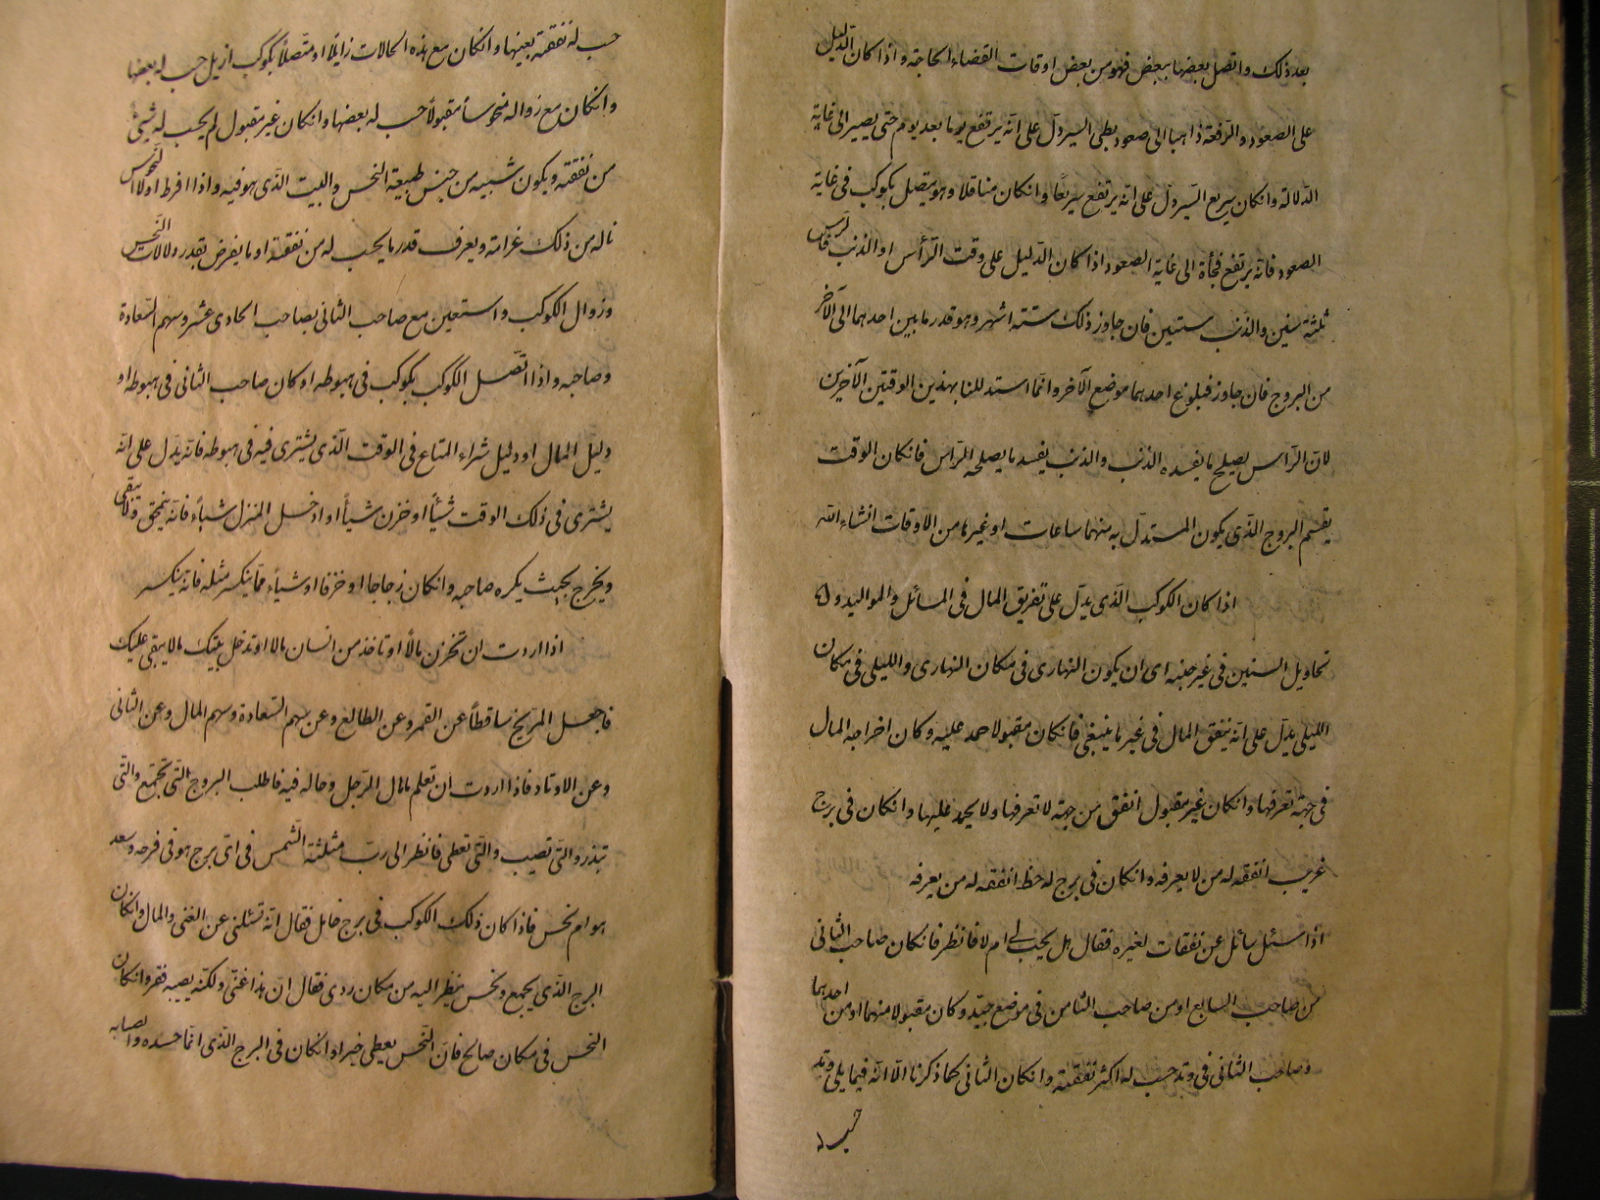 بعد ذلك واتصل بعضها ببعض فهو من بعض اوقات القضاء الحاجة واذا كان الدليل
على الصعود والرفعة ذاهبا الى صعود بطى السير دل على انه يرتفع يوما بعد يوم حتى يصير الى غاية
الدلالة وانكان سريع السير دل على انه يرتفع سريعا وانكان متاقلا وهو متصل بكوكب فى غاية
الصعود فانه يرتفع فجأة الى غاية الصعود اذا كان الدليل على وقت الرأس او الذنب فالرأس
ثلثة سنين والذنب سنتين فان جاوز ذلك ستة اشهر وهو قدر ما بين احدهما الى الآخر
من البروج فان جاوز فبلوغ احدهما موضع الآخر وانما استدللنا بهذين الوقتين الآخرين
لان الرأس يصلح ما يفسده الذنب والذنب يفسد ما يصلحه الرأس فانكان الوقت
يقسم البروج الذى يكون المستدل به منهما ساعات او غيرها من الاوقات انشاء الله
اذا كان الكوكب الذى يدل على تفريق المال فى المسائل والمواليد و
تحاويل السنين فى غير حيزه اى ان يكون النهارى فى مكان النهارى والليلى فى مكان
الليلى يدل على انه ينفق المال فى غير ما ينبغى فانكان مقبولا حمد عليه وكان اخراجه المال
فى جهة تعرفها وانكان غير مقبول انفق من جهة لا تعرفها ولا يحمد عليها وانكان فى برج
غريب انفقه له من لا يعرفه وانكان فى برج له حظ انفقه له من يعرفه
اذا سئل سائل عن نفقات لغيره فقال هل يحسب لى ام لا فانظر فانكان صاحب الثانى
من صاحب السابع او من صاحب الثامن فى موضع جيد وكان مقبولا منهما او من احدهما
وصاحب الثانى فى وتد حسب له اكثر نفقته وانكان الثانى كما ذكرنا الا انه فيما يلى وتد
حسب له
حسب له نفقته بعينها وانكان مع هذه الحالات زايلا او متصلا بكوكب ازيل حسب له بعضها
وانكان مع زواله منحوسا مقبولا حسب له بعضها وانكان غير مقبول لم يحسب له شيئ
من نفقته ويكون شبيه من جنس طبيعة النحس والبيت الذى هو فيه واذا افرط اولا النحوس
ناله من ذلك غرامة ويعرف قدر ما يحسب له من نفقته او ما يفرض بقدر دلالات النحس
وزوال الكوكب واستعين مع صاحب الثانى بصاحب الحادى عشر وسهم السعادة
وصاحبه واذا اتصل الكوكب بكوكب فى هبوطه او كان صاحب الثانى فى هبوطه او
دليل المال او دليل شراء المتاع فى الوقت الذى يشترى فيه فى هبوطه فانه يدل على انه
يشترى فى ذلك الوقت شيئا او خزن شيأ او ادخل المنزل شيأء فانه يمحق ولا يبقى
ويخرج بحيث يكره صاحبه وانكان زجاجا او خزفا او شيأء مما ينكسر مثله فانه ينكسر
اذا اردت ان تخزن مالا او تاخذ من انسان مالا او تدخل بيتك مالا يبقى عليك
فاجعل المريخ ساقطا عن القمر وعن الطالع وعن سهم السعادة وسهم المال وعن الثانى
وعن الاوتاد فاذا اردت ان تعلم مال الرجل وحاله فيه فاطلب البروج التى تجتمع والتى
تبذر والتى تصيب والتى تعطى فانظر الى رب مثلثة الشمس فى اى برج هو فى فرحه وسعد
هو ام نحس فاذا كان ذلك الكوكب فى برج فقال انه تسئلنى عن الغنى والمال وانكان
البرج الذى يجمع ونحس ينظر اليه من مكان ردى فقال ان هذا غنى ولكنه يصيبه فقر وانكان
النحس فى مكان صالح فان النحس يعطى خيرا وانكان فى البرج الذى انما حسده واصابه